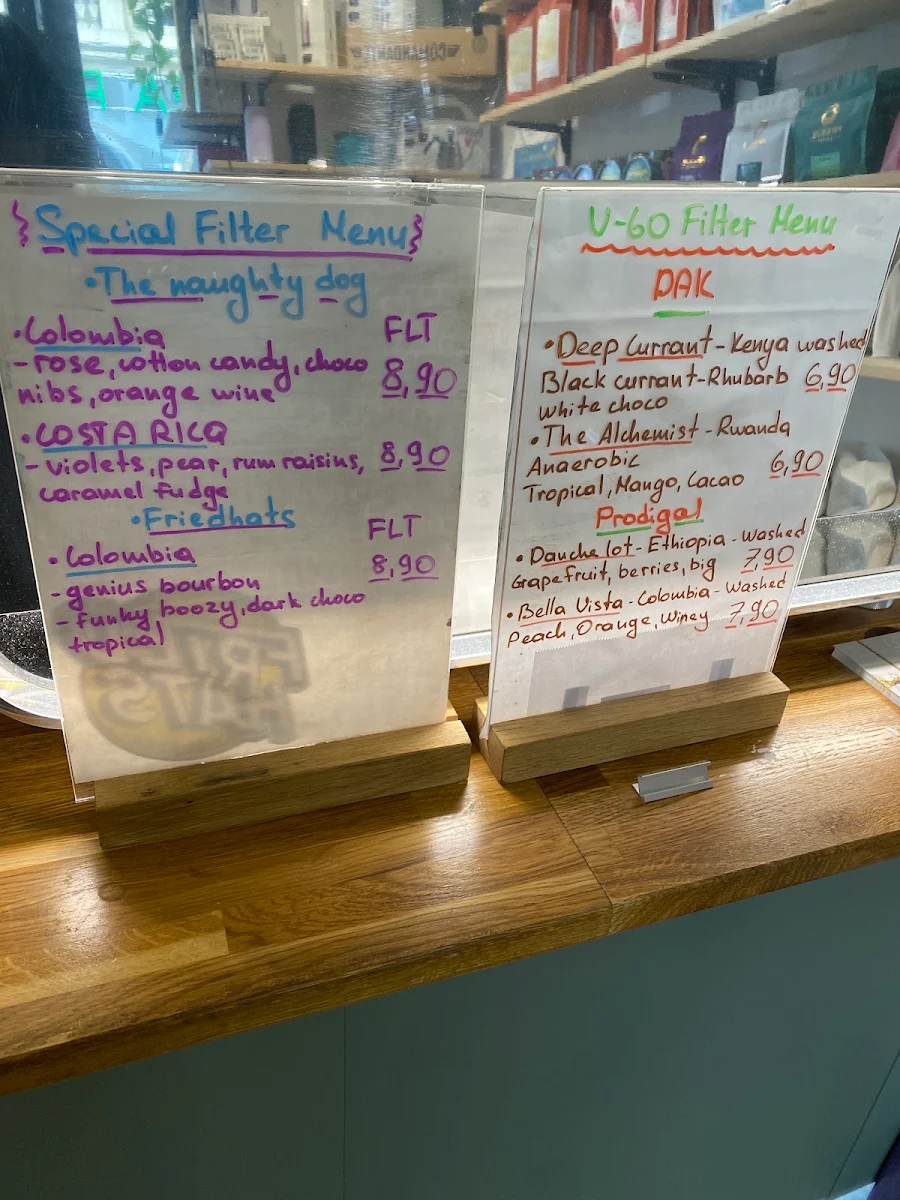 Special Filter Menu
• The naughty dog
• Colombia FLT
- rose, cotton candy, choco 8,90
nibs, orange wine
• COSTA RICA
- violets, pear, rum raisins, 8,90
caramel fudge
• Friedhats
• Colombia FLT
- genius bourbon 8,90
- funky boozy, dark choco
tropical
V-60 Filter Menu
DAK
• Deep Currant - Kenya washed
Black currant - Rhubarb 6,90
white choco
• The Alchemist - Rwanda
Anaerobic 6,90
Tropical, Mango, Cacao
Prodigal
• Danche lot - Ethiopia - Washed
Grapefruit, berries, big 7,90
• Bella Vista - Colombia - Washed
Peach, Orange, Winey 7,90
COMANDANTE